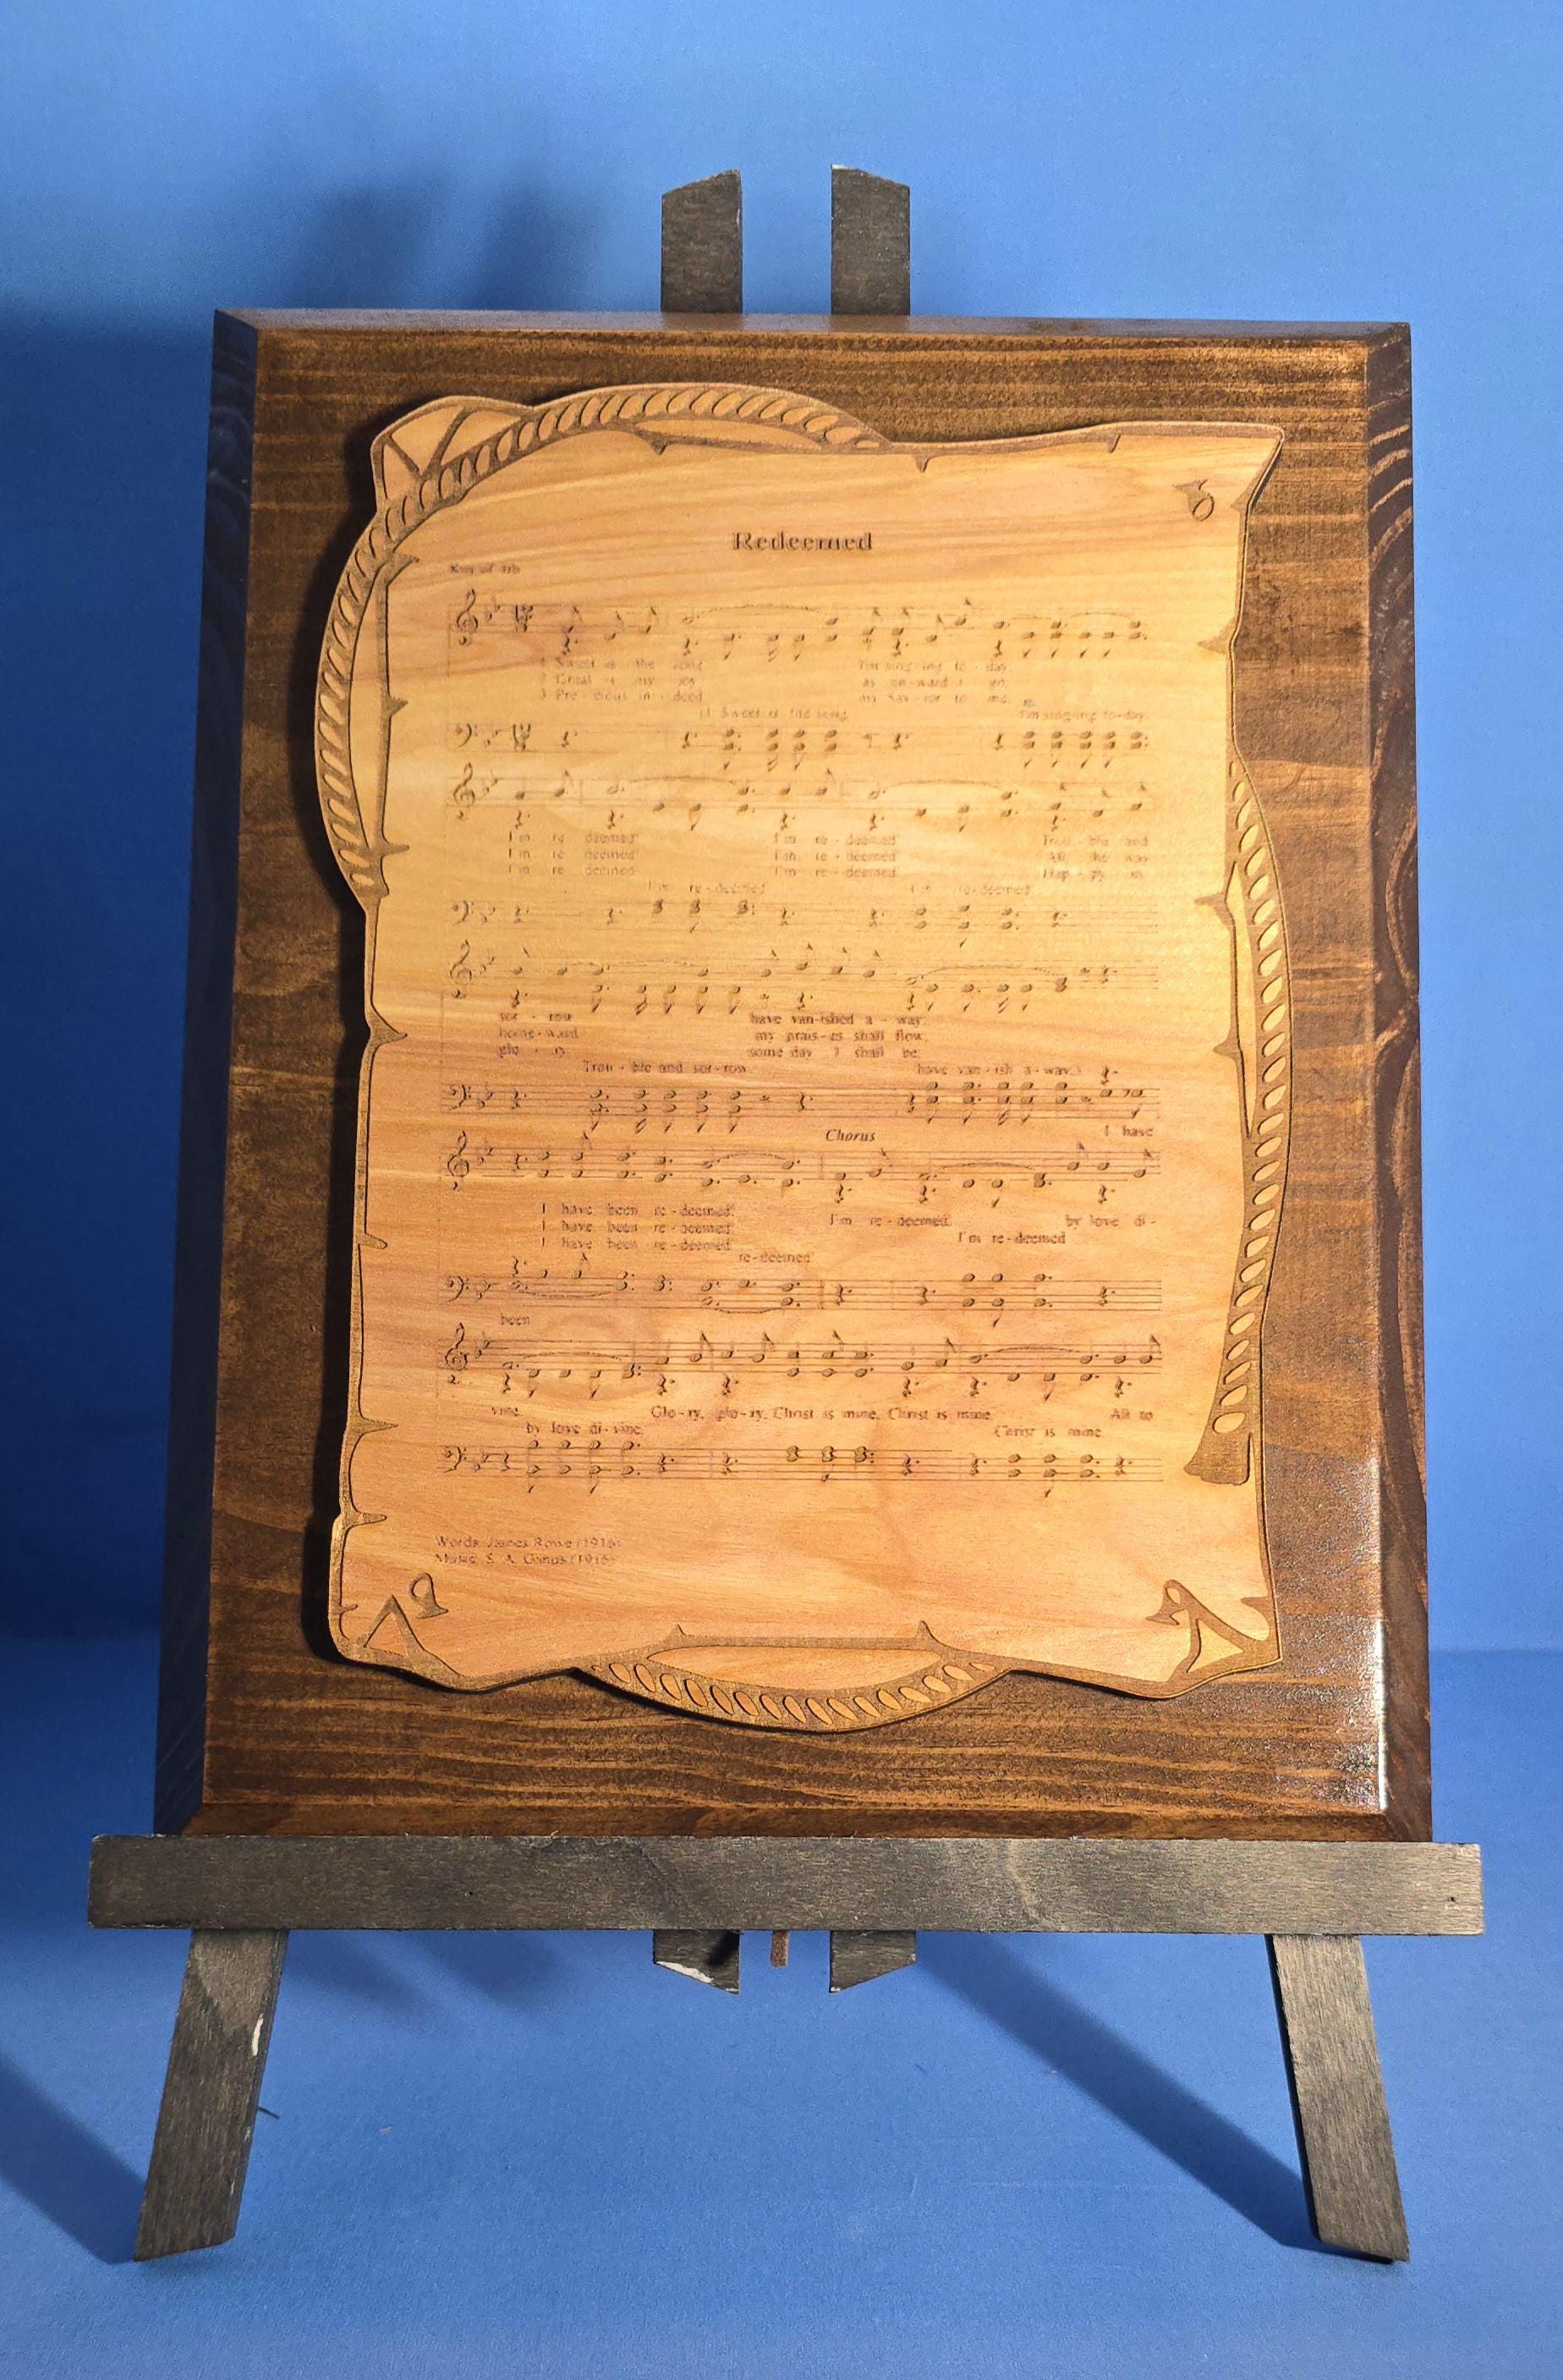 Redeemed
Key of
1 Sweet is the song I'm sing-ing to - day
2 Great is my joy as on-ward I go,
3 Pre - cious in - deed my Sav - ior to me,
Sweet is the song I'm sing-ing to-day.
I'm re - deemed I'm re - deemed Trou - ble and
I'm re - deemed I'm re - deemed All the way
I'm re - deemed I'm re - deemed Hap - py in
I'm re-deemed I'm re-deemed
sor - row have van-ished a - way,
home - ward my prais-es shall flow,
glo - ry some day I shall be;
Trou - ble and sor-row have van - ish a - way,
I have
Chorus
I have been re - deemed. I'm re - deemed by love di -
I have been re - deemed
I have been re - deemed I'm re - deemed
re - deemed
been
vine, Glo - ry, glo - ry, Christ is mine, Christ is mine, All to
by love di - vine, Christ is mine
Words: James Rowe (1916)
Music: S. A. Ganus